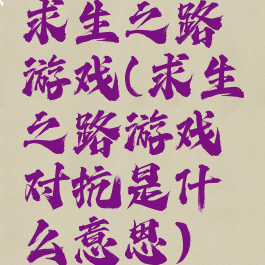 求生之路
游戏(求生
之路游戏
对抗是什
么意思)